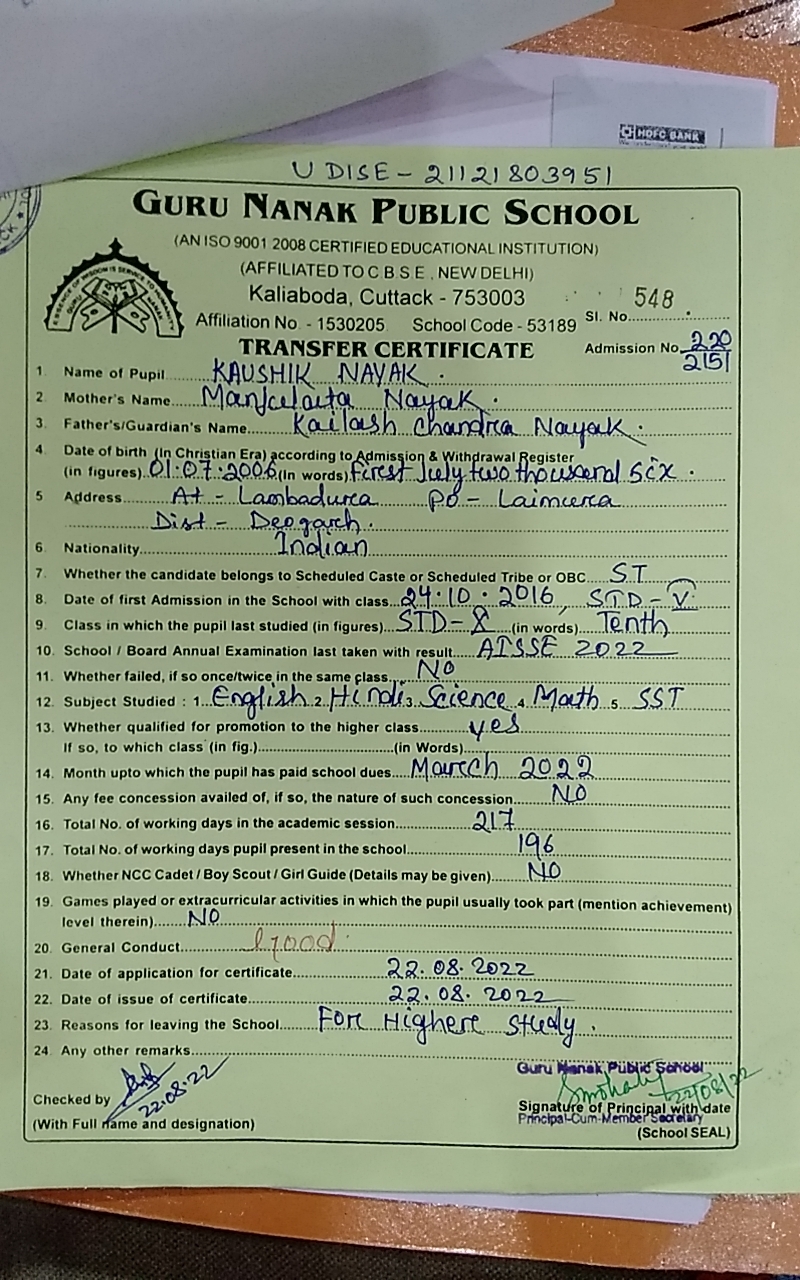 HDFC BANK
U DISE - 21121803951
GURU NANAK PUBLIC SCHOOL
(AN ISO 9001 2008 CERTIFIED EDUCATIONAL INSTITUTION)
(AFFILIATED TO C B S E , NEW DELHI)
Kaliaboda, Cuttack - 753003
Sl. No. 548
Affiliation No. - 1530205 School Code - 53189
TRANSFER CERTIFICATE
Admission No. 220/2151
1 Name of Pupil KAUSHIK NAYAK.
2 Mother's Name Manjulata Nayak.
3. Father's/Guardian's Name Kailash Chandra Nayak.
4 Date of birth (In Christian Era) according to Admission & Withdrawal Register
(in figures) 01.07.2006 (In words) First July two thousand six.
5 Address At - Lambadura Po - Laimura
Dist - Deogarh.
6. Nationality Indian
7. Whether the candidate belongs to Scheduled Caste or Scheduled Tribe or OBC ST
8. Date of first Admission in the School with class 24.10.2016, STD - V
9. Class in which the pupil last studied (in figures) STD - X (in words) Tenth
10. School / Board Annual Examination last taken with result AISSE 2022
11. Whether failed, if so once/twice in the same class NO
12. Subject Studied : 1. English 2. Hindi 3. Science 4. Math 5. SST
13. Whether qualified for promotion to the higher class yes
If so, to which class (in fig.) (in Words)
14. Month upto which the pupil has paid school dues March 2022
15. Any fee concession availed of, if so, the nature of such concession NO
16. Total No. of working days in the academic session 217
17. Total No. of working days pupil present in the school 196
18. Whether NCC Cadet / Boy Scout / Girl Guide (Details may be given) NO
19. Games played or extracurricular activities in which the pupil usually took part (mention achievement)
level therein) NO
20. General Conduct Good.
21. Date of application for certificate 22.08.2022
22. Date of issue of certificate 22.08.2022
23. Reasons for leaving the School For Highere study.
24. Any other remarks
Guru Nanak Public School
22.08.22
22/08/22
Checked by
Signature of Principal with date
Principal-Cum-Member Secretary
(With Full name and designation)
(School SEAL)